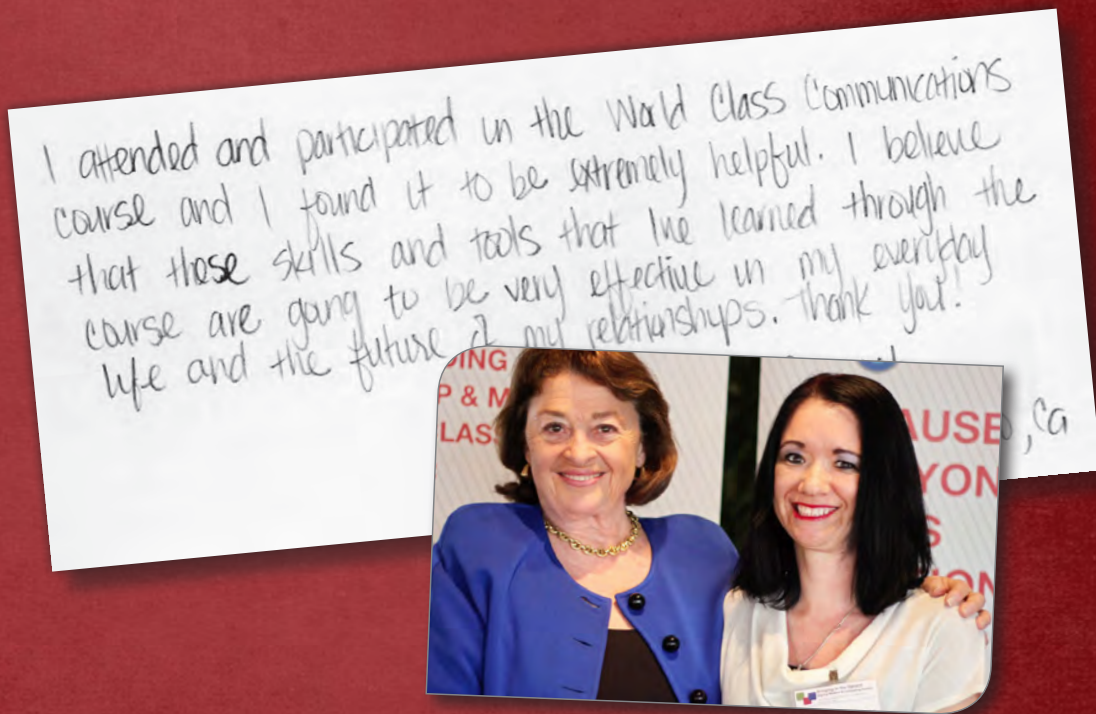 I attended and participated in the World Class Communications
course and I found it to be extremely helpful. I believe
that these skills and tools that Ive learned through the
course are going to be very effective in my everyday
life and the future of my relationships. Thank you!
, Ca
DING
P & M
LAS
AUSE
YON
S
ION